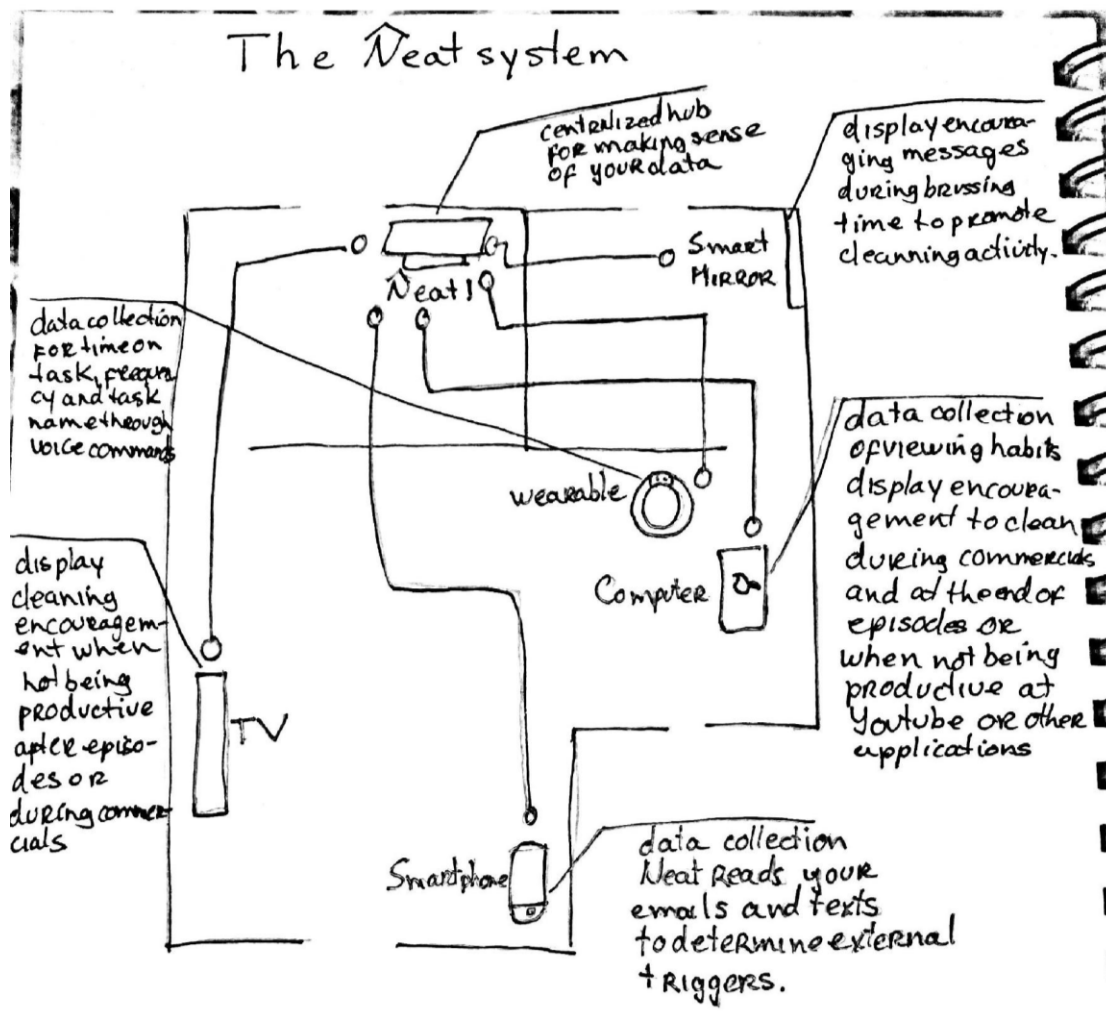 The Neat system
centralized hub
for making sense
of your data
display encoura-
ging messages
during brussing
time to promote
cleanning activity.
Smart
Mirror
Neat!
data collection
for time on
task, frequen
cy and task
name through
voice commands
wearable
data collection
of viewing habits
display encoura-
gement to clean
during commercials
and at the end of
episodes or
when not being
productive at
Youtube or other
applications
Computer
display
cleaning
encouragem-
ent when
not being
productive
after episo-
des or
during commer-
cials
TV
Smartphone
data collection
Neat Reads your
emails and texts
to determine external
triggers.